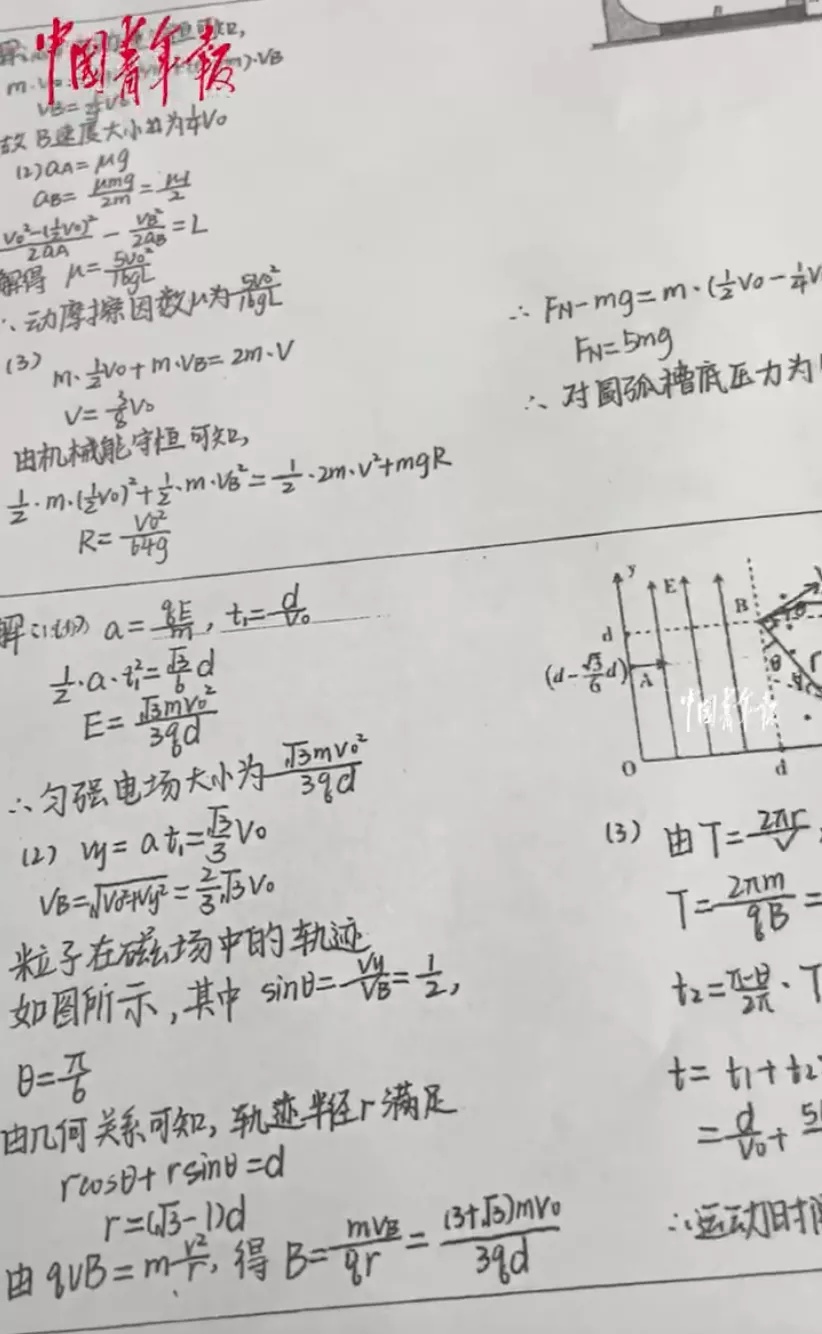 中国青年报
故B速度大小为¼V₀
(2) aA=μg
aB=μmg/2m=μg/2
(V₀²-(½V₀)²)/2aA - VB²/2aB=L
解得 μ=5V₀²/16gL
∴动摩擦因数μ为5V₀²/16gL
(3) m·½V₀+m·VB=2m·V
V=⅜V₀
由机械能守恒可知,
½·m·(½V₀)²+½·m·VB²=½·2m·V²+mgR
R=V₀²/64g
∴FN-mg=m·(½V₀-¼V
FN=5mg
∴对圆弧槽底压力为
a=qE/m, t₁=d/V₀
½·a·t₁²=√3/6 d
E=√3mV₀²/3qd
∴匀强电场大小为√3mV₀²/3qd
(2) Vy=at₁=√3/3 V₀
VB=√(V₀²+Vy²)=2/3√3V₀
粒子在磁场中的轨迹
如图所示,其中 sinθ=Vy/VB=1/2,
θ=π/6
由几何关系可知,轨迹半径r满足
rcosθ+rsinθ=d
r=(√3-1)d
由qVB=mV²/r, 得 B=mVB/qr=(3+√3)mV₀/3qd
y
E
B
d
θ
r
(d-√3/6 d)
A
中国青年报
O
d
(3) 由T=2πr/V
T=2πm/qB=
t₂=(π-θ)/2π·T
t=t₁+t₂
=d/V₀+
∴运动时间